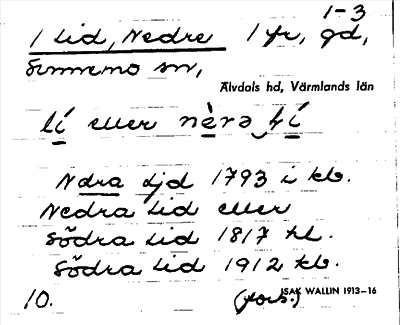 1-3
1 Lid, Nedre 1 fr, gd,
Ämmeno sn,
Älvdals hd, Värmlands län
lí eller nèrə lí
Ndra Ljd 1793 i kb.
Nedra Lid eller
Södra Lid 1817 hl.
Södra Lid 1912 kb.
10. (forts.) ISAK WALLIN 1913–16